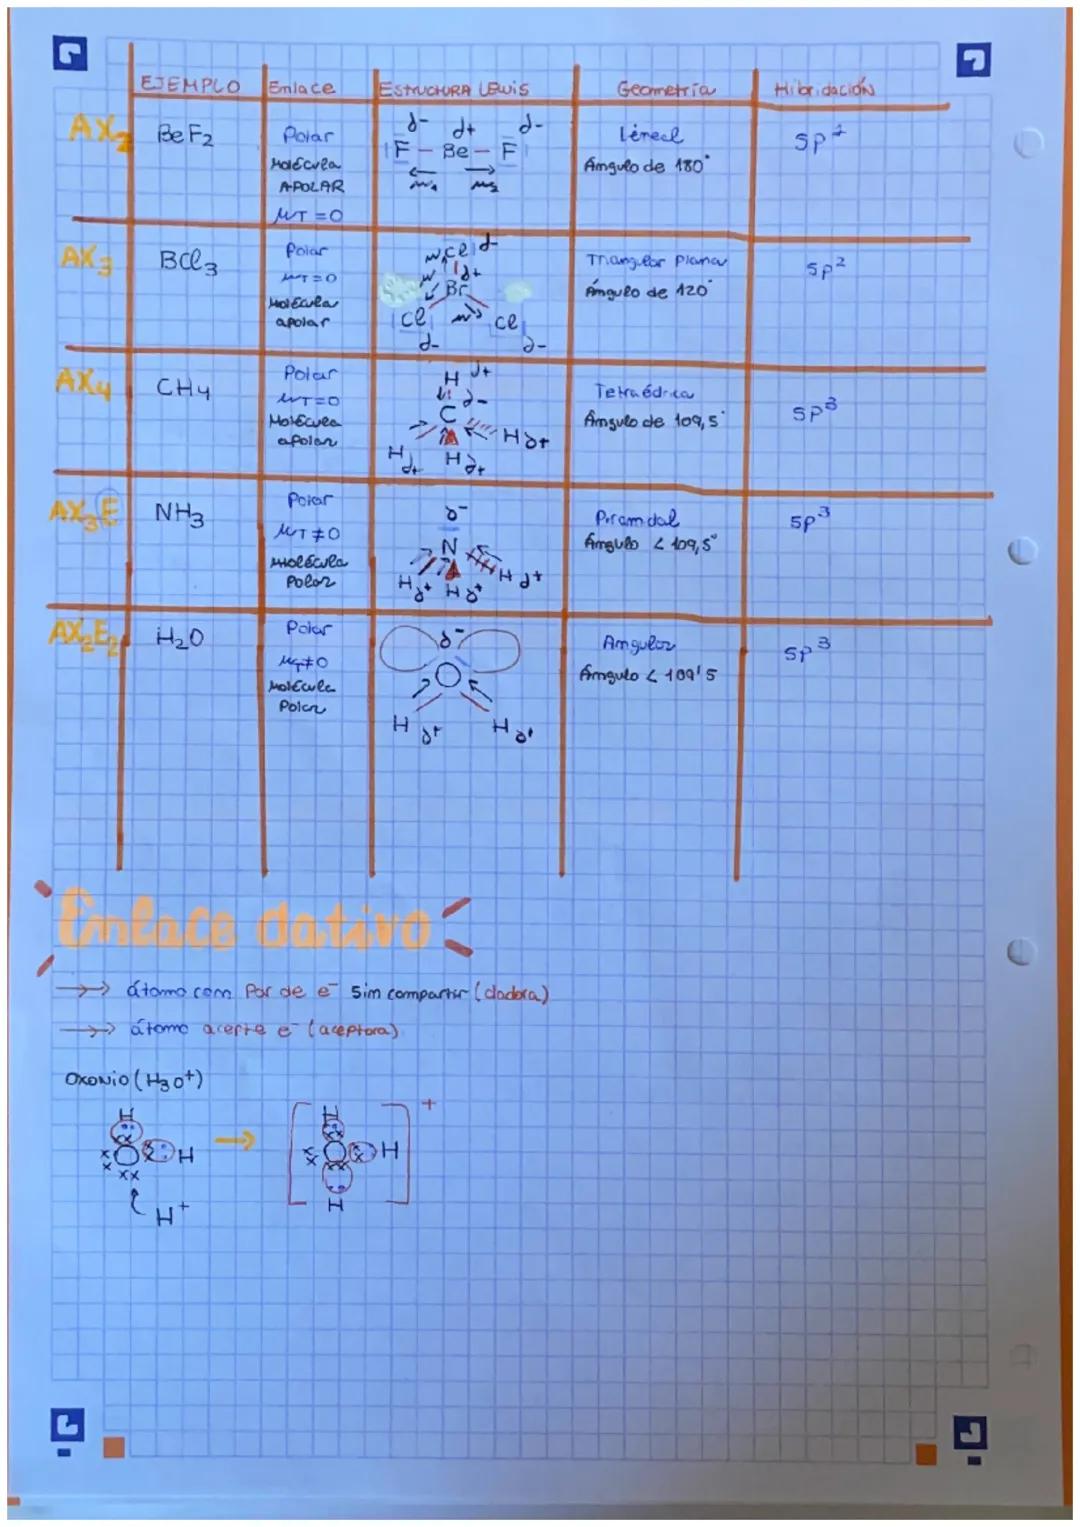 EJEMPLO Enlace ESTRUCTURA LEWIS Geometría Hibridación
AX2 BeF2
Polar
Molécula
APOLAR
μT = 0
δ- δ+ δ-
F — Be — F
μ1 μ2
Lineal
Ángulo de 180°
sp
AX3 BCl3
Polar
μT = 0
Molécula
apolar
μ Cl δ-
μ δ+
Br
Cl μ Cl
δ- δ-
Triangular Plana
Ángulo de 120°
sp2
AX4 CH4
Polar
μT = 0
Molécula
apolar
H δ+
δ-
C
H δ+
H H
δ+ δ+
Tetraédrica
Ángulo de 109,5°
sp3
AX3E NH3
Polar
μT ≠ 0
Molécula
Polar
δ-
N
H δ+ H δ+ H δ+
Piramidal
Ángulo < 109,5°
sp3
AX2E2 H2O
Polar
μT ≠ 0
Molécula
Polar
δ-
O
H δ+ H δ+
Angular
Ángulo < 109'5
sp3
Enlace dativo
→ átomo con Par de e- sin compartir (dadora)
→ átomo acepte e- (aceptora)
Oxonio (H3O+)
H H +
O H → O H
H+ H